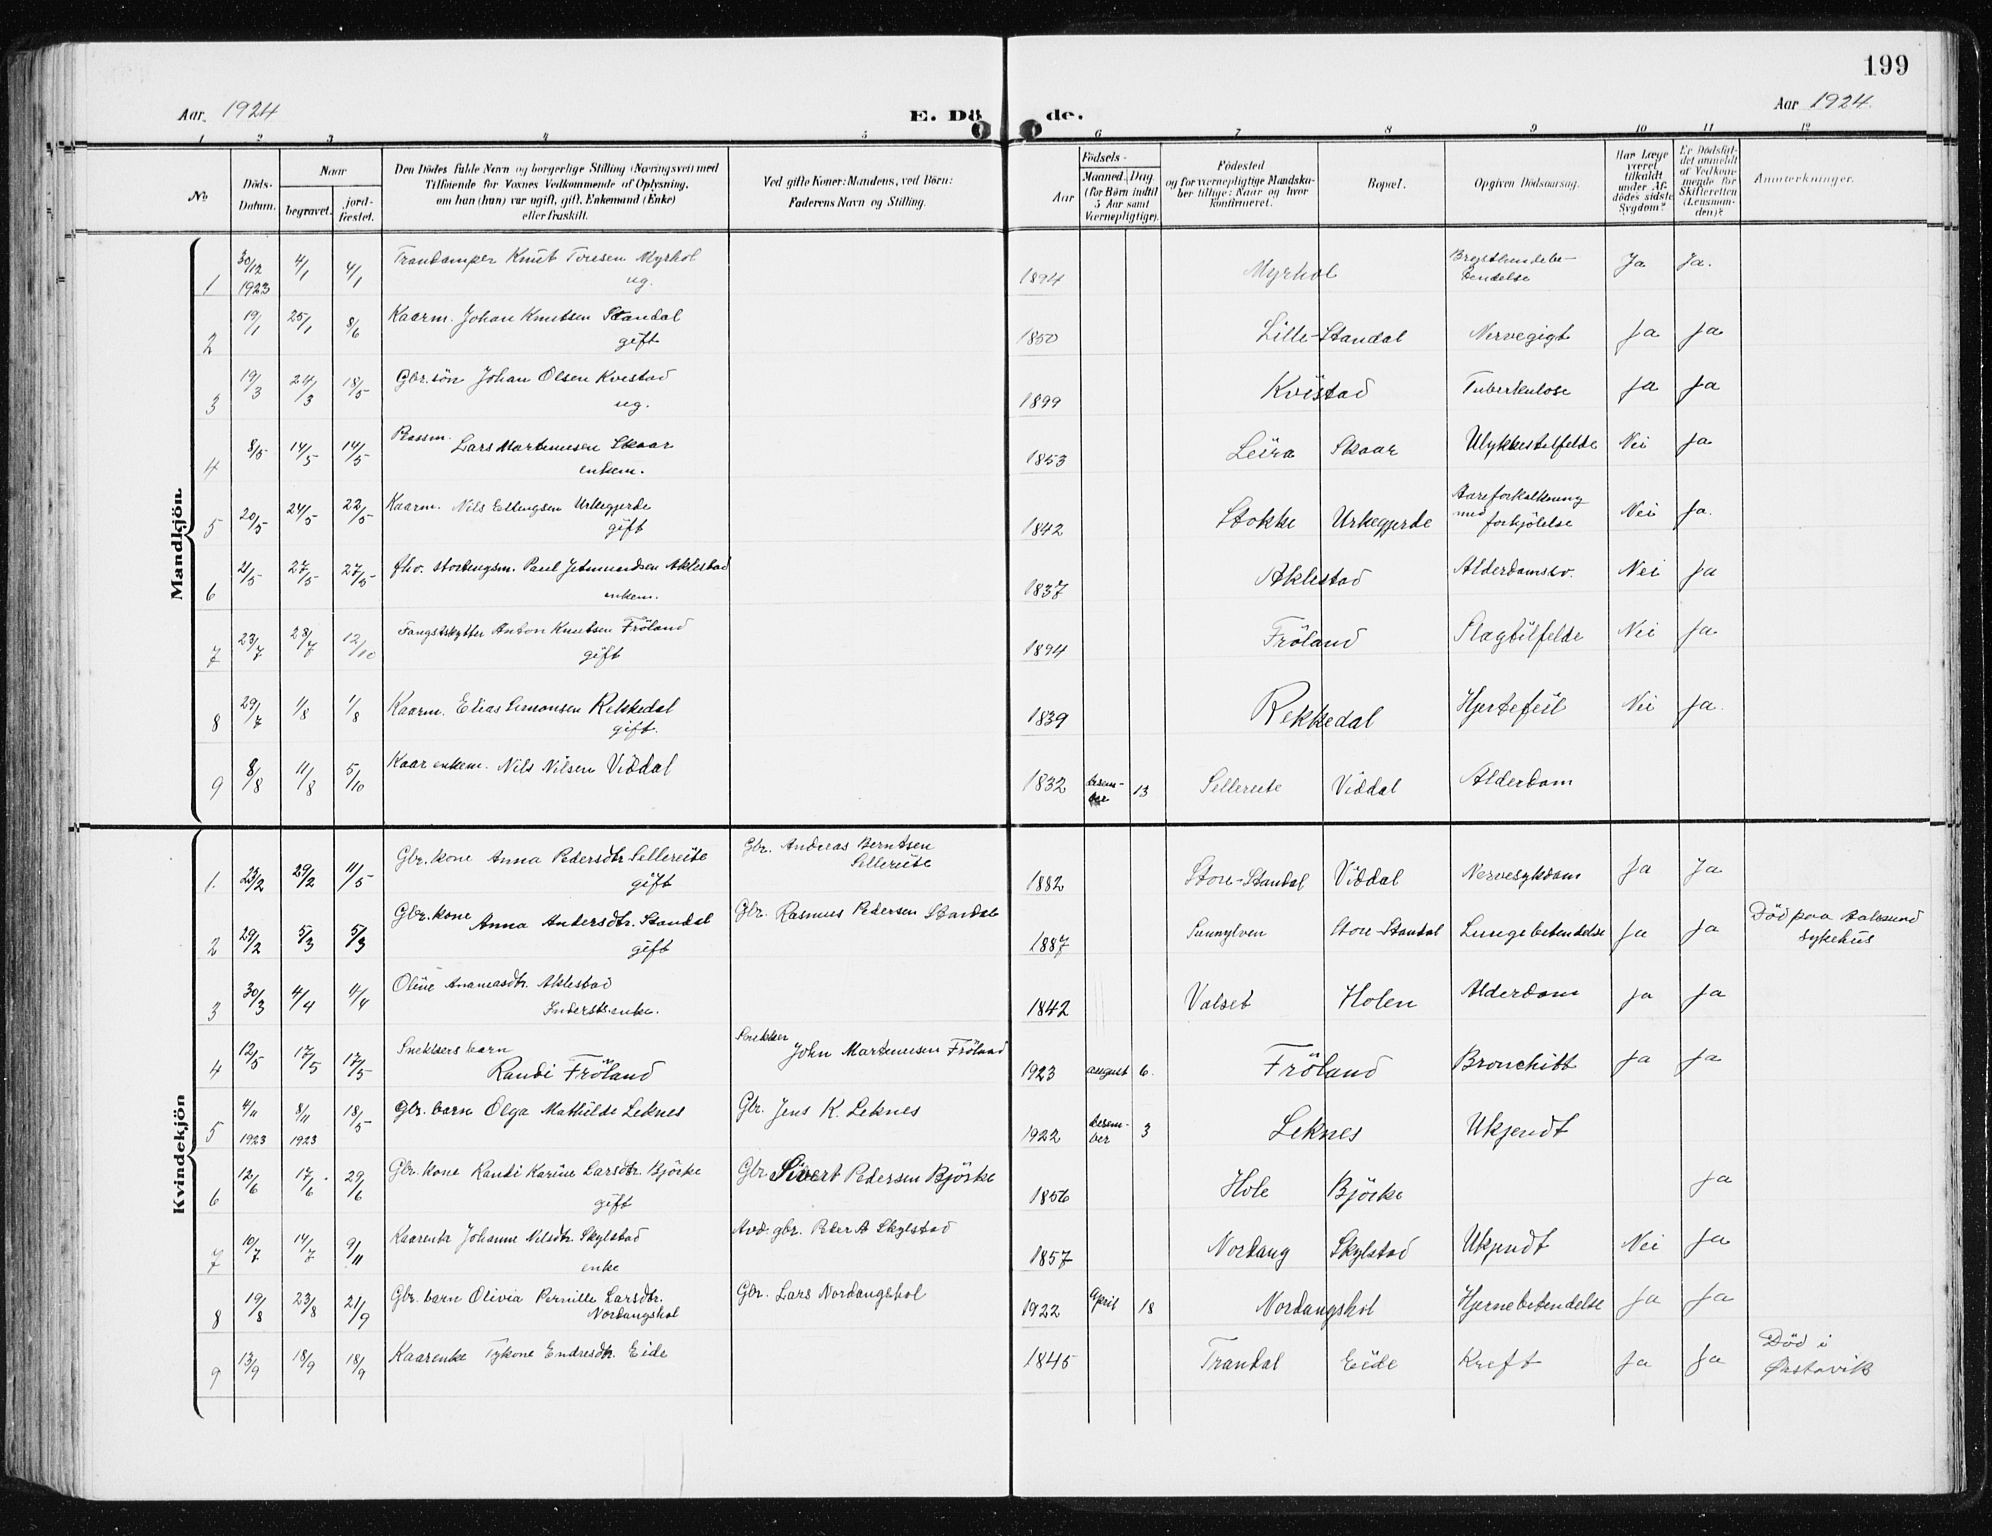 199
Aar 1924
E. Dö de.
Aar 1924
1 2 3 4 5 6 7 8 9 10 11 12
No.
Döds-Datum.
Naar
begravet.
jord-fæstet.
Den Dödes fulde Navn og borgerlige Stilling (Næringsvei) med
Tilföiende for Voxnes Vedkommende af Oplysning,
om han (hun) var ugift, gift, Enkemand (Enke)
eller fraskilt.
Ved gifte Koner: Mandens, ved Börn:
Faderens Navn og Stilling.
Födsels-
Aar
Maaned. Dag
(for Börn indtil
5 Aar samt
Værnepligtige).
Födested
og for værnepligtige Mandska-
ber tillige: Naar og hvor
konfirmeret.
Bopæl.
Opgiven Dödsaarsag.
Har Læge
været
tilkaldt
under Af-
dödes sidste
Sygdom?
Er Dödsfal-
det anmeldt
af Vedkom-
mende for
Skifteretten
(Lensman-
den)?
Anmærkninger.
Mandkjön.
1 30/12 1923 4/1 4/1 Knut Toresen Myrhol ug. 1894 Myrhol Ja Ja.
2 19/1 25/1 8/6 Kaarm. Johan Knutsen Standal gift 1850 Lille-Standal Nervegigt Ja Ja
3 19/3 24/3 18/5 Gbr. sön Johan Olsen Kvistad ug. 1899 Kvistad Tuberkulose Ja Ja
4 8/5 14/5 14/5 Lars Martinusen Skaar enkem. 1853 Leira Skaar Ulykkestilfelde Nei Ja
5 20/5 24/5 22/5 Kaarm. Nils Ellingsen Urkegjerde gift 1842 Stokke Urkegjerde Aareforkalkning med forkjölelse Nei Ja.
6 21/5 27/5 27/5 fhv. stortingsm. Paul Jetmundsen Aklestad enkem. 1837 Aklestad Alderdomssv. Nei Ja
7 23/7 28/7 12/10 Fangstskytter Anton Knutsen Fröland gift 1894 Fröland Slagtilfelde Nei Ja
8 29/7 1/8 1/8 Kaarm. Elias Simonsen Rekkedal gift. 1839 Rekkedal Hjertefeil Nei Ja.
9 8/8 11/8 5/10 Kaar enkem. Nils Nilsen Viddal 1832 desem-ber 13 Sellereite Viddal Alderdom
Kvindekjön
1. 23/2 29/2 11/5 Gbr. kone Anna Pedersdtr. Sellereite gift Gbr. Andreas Berntsen Sellereite 1882 Store-Standal Viddal Nervesykdom Ja Ja
2 29/2 5/3 5/3 Gbr. kone Anna Andersdtr. Standal gift Gbr. Rasmus Pedersen Standal 1887 Sunnylven Store-Standal Lungebetendelse Ja Ja Död paa Aalesund sykehus
3 30/3 4/4 4/4 Oline Ananiasdtr. Aklestad Inderstsenke. 1842 Valset Holen Alderdom Ja Ja
4 12/5 17/5 17/5 Snekkers barn Randi Fröland Snekker John Martinusen Fröland 1923 august 6. Fröland Bronchitt Ja Ja
5 4/11 1923 8/11 1923 18/5 Gbr. barn Olga Mathilde Leknes Gbr. Jens K. Leknes 1922 desem-ber 3 Leknes Ukjendt
6 12/6 17/6 29/6 Gbr. kone Randi Karine Larsdtr. Björke gift Gbr. Sivert Pedersen Björke 1856 Hole Björke Ja
7 10/7 14/7 9/11 Johanne Nilsdtr. Skylstad enke Avd. gbr. Peter A Skylstad 1857 Nordang Skylstad Ukjendt Nei Ja
8 19/8 23/8 21/9 Gbr. barn Olivia Pernille Larsdtr. Nordangshol Gbr. Lars Nordangshol 1922 April 18 Nordangshol Hjernebetendelse Ja Ja
9 13/9 18/9 18/9 Kaarenke Endresdtr. Eide 1845 Trandal Eide Kreft Ja Ja Död i Ørstavik